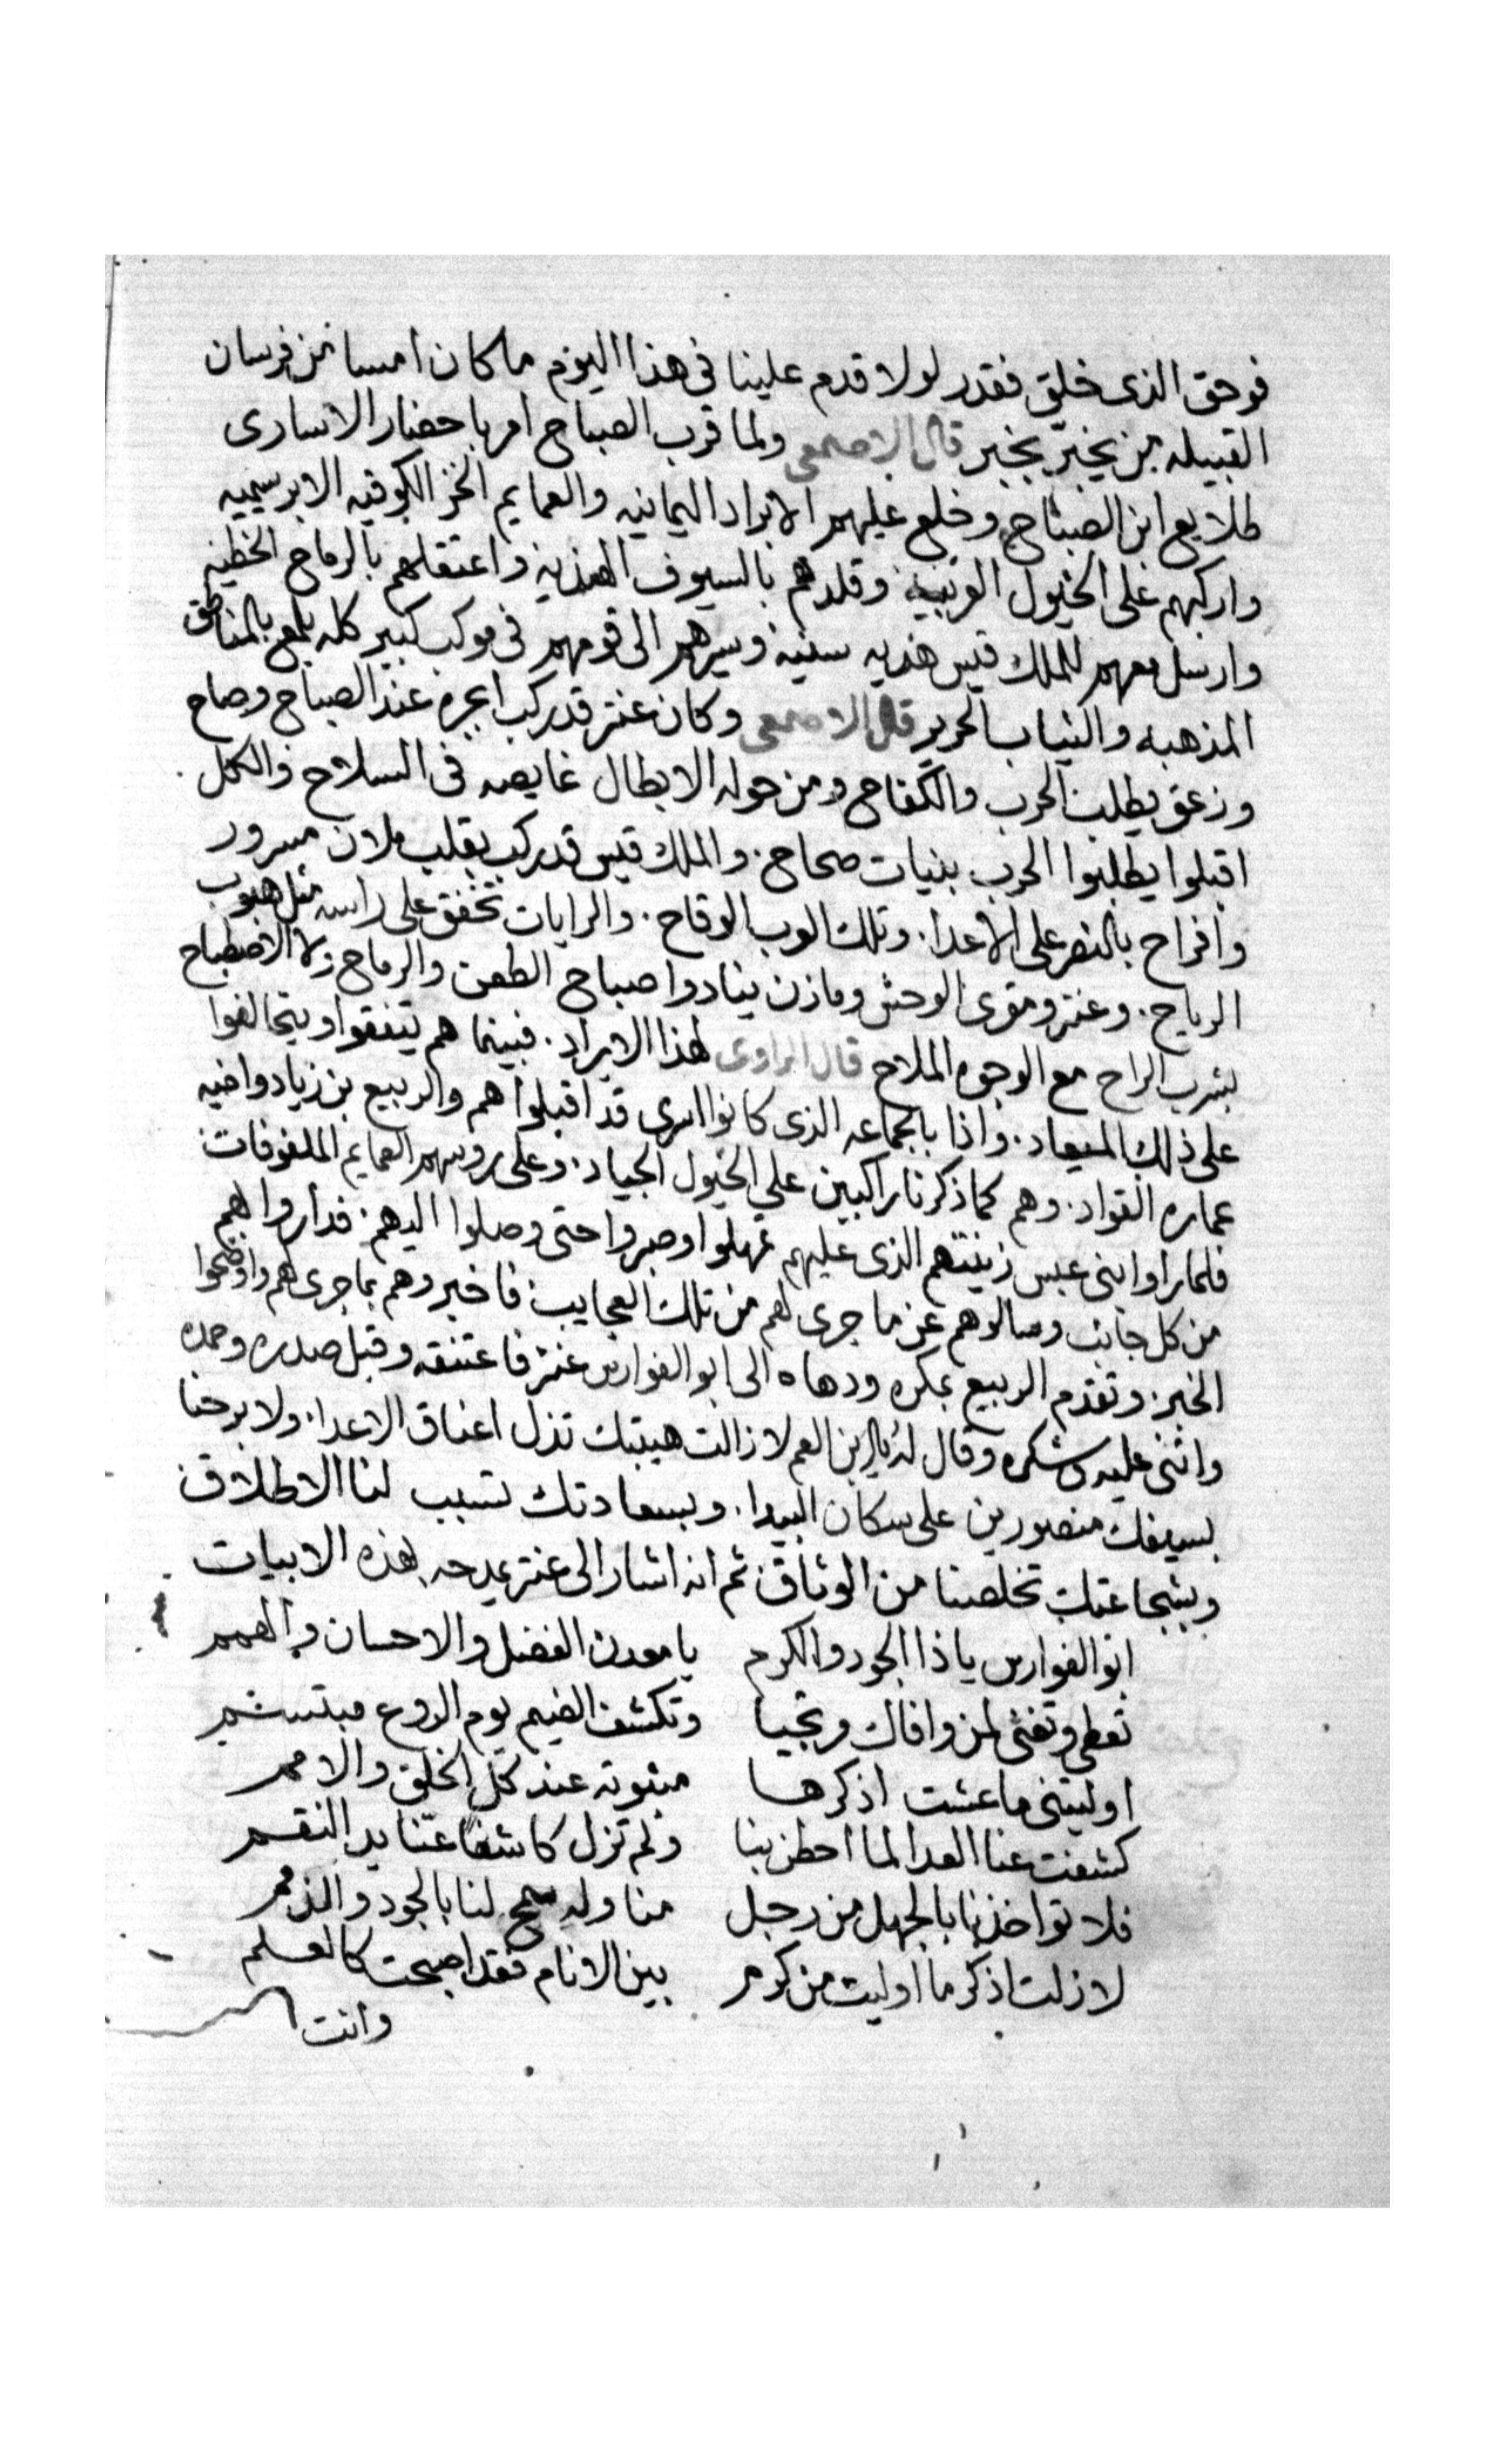 فوحق الذى خلق فقدر لولا قدم علينا فى هذا اليوم ما كان امسا من فرسان
القبيله من يخبر بخبر قال الاصمعى ولما قرب الصباح امر باحضار الاسارى
طلايع ابن الصباح وخلع عليهم الابراد اليمانيه والعمايم الخز الكوفيه الابرسيميه
واركبهم على الخيول العربيه وقلدهم بالسيوف الهنديه واعتقلهم بالرماح الخطيه
وارسل معهم للملك قيس هديه سنيه وسيرهم الى قومهم فى موكب كبير كله يلمع بالمناطق
المذهبه والثياب الحرير قال الاصمعى وكان عنتر قد ركب ابجره عند الصباح وصاح
وزعق يطلب الحرب والكفاح ومن حوله الابطال غايصه فى السلاح والكل
اقبلوا يطلبوا الحرب بنيات صحاح. والملك قيس قد ركب بقلب ملان مسرور
وافراح بالنصر على الاعدا. وتلك الوب الوقاح. والرايات تخفق على راسه مثل هبوب
الرياح. وعنتر ومقرى الوحش ومازن ينادوا صباح الطعن والرماح ولا الاصطباح
بشرب الراح مع الوجوه الملاح قال الراوى لهذا الايراد. فبينما هم يتفقوا ويتحالفوا
على ذلك الميعاد. واذا بالجماعه الذى كانوا اسرى قد اقبلوا هم والربيع بن زياد واخيه
عماره القواد. وهم كما ذكرنا راكبين على الخيول الجياد. وعلى روسهم العمايم الملفوفات
فلما راوا بنى عبس زينتهم الذى عليهم تمهلوا وصبروا حتى وصلوا اليهم. فداروا بهم
من كل جانب وسالوهم عن ما جرى لهم من تلك العجايب فاخبروهم بما جرى لهم واوضحوا
الخبر. وتقدم الربيع بمكره ودهاه الى ابو الفوارس عنتر فاعتنقه وقبل صدره وحمده
واثنى عليه وشكره وقال له يا ابن العم لا زالت هيبتك تذل اعناق الاعدا. ولا برحنا
بسيفك منصورين على سكان البيدا. وبسعادتك تسبب لنا الاطلاق
وبشجاعتك تخلصنا من الوثاق ثم انه اشار الى عنتر يمدحه بهذه الابيات
ابو الفوارس يا ذا الجود والكرم يا معدن الفضل والاحسان والهمم
تعطى وتغنى لمن وافاك وتجيا وتكشف الضيم يوم الروع مبتسم
اوليتنى ما عشت اذكرها مبثوته عند كل الخلق والامم
كشفت عنا العدا لما احطن بنا ولم تزل كاشفا عنا يد النقم
فلا تواخذنا بالجهل من رجل منا وله سمح لنا بالجود والذمم
لا زلت اذكر ما اوليت من كرم بين الانام فقد اصبحت كالعلم
وانت